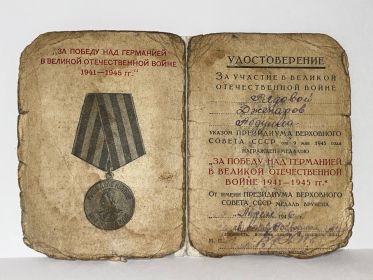 "ЗА ПОБЕДУ НАД ГЕРМАНИЕЙ
В ВЕЛИКОЙ ОТЕЧЕСТВЕННОЙ ВОЙНЕ
1941—1945 гг."
УДОСТОВЕРЕНИЕ
ЗА УЧАСТИЕ В ВЕЛИКОЙ
ОТЕЧЕСТВЕННОЙ ВОЙНЕ
Рядовой
Джепаров
УКАЗОМ ПРЕЗИДИУМА ВЕРХОВНОГО
СОВЕТА СССР от 9 мая 1945 года
НАГРАЖДЕН МЕДАЛЬЮ
"ЗА ПОБЕДУ НАД ГЕРМАНИЕЙ
В ВЕЛИКОЙ ОТЕЧЕСТВЕННОЙ
ВОЙНЕ 1941—1945 гг."
От имени ПРЕЗИДИУМА ВЕРХОВНОГО
СОВЕТА СССР МЕДАЛЬ ВРУЧЕНА